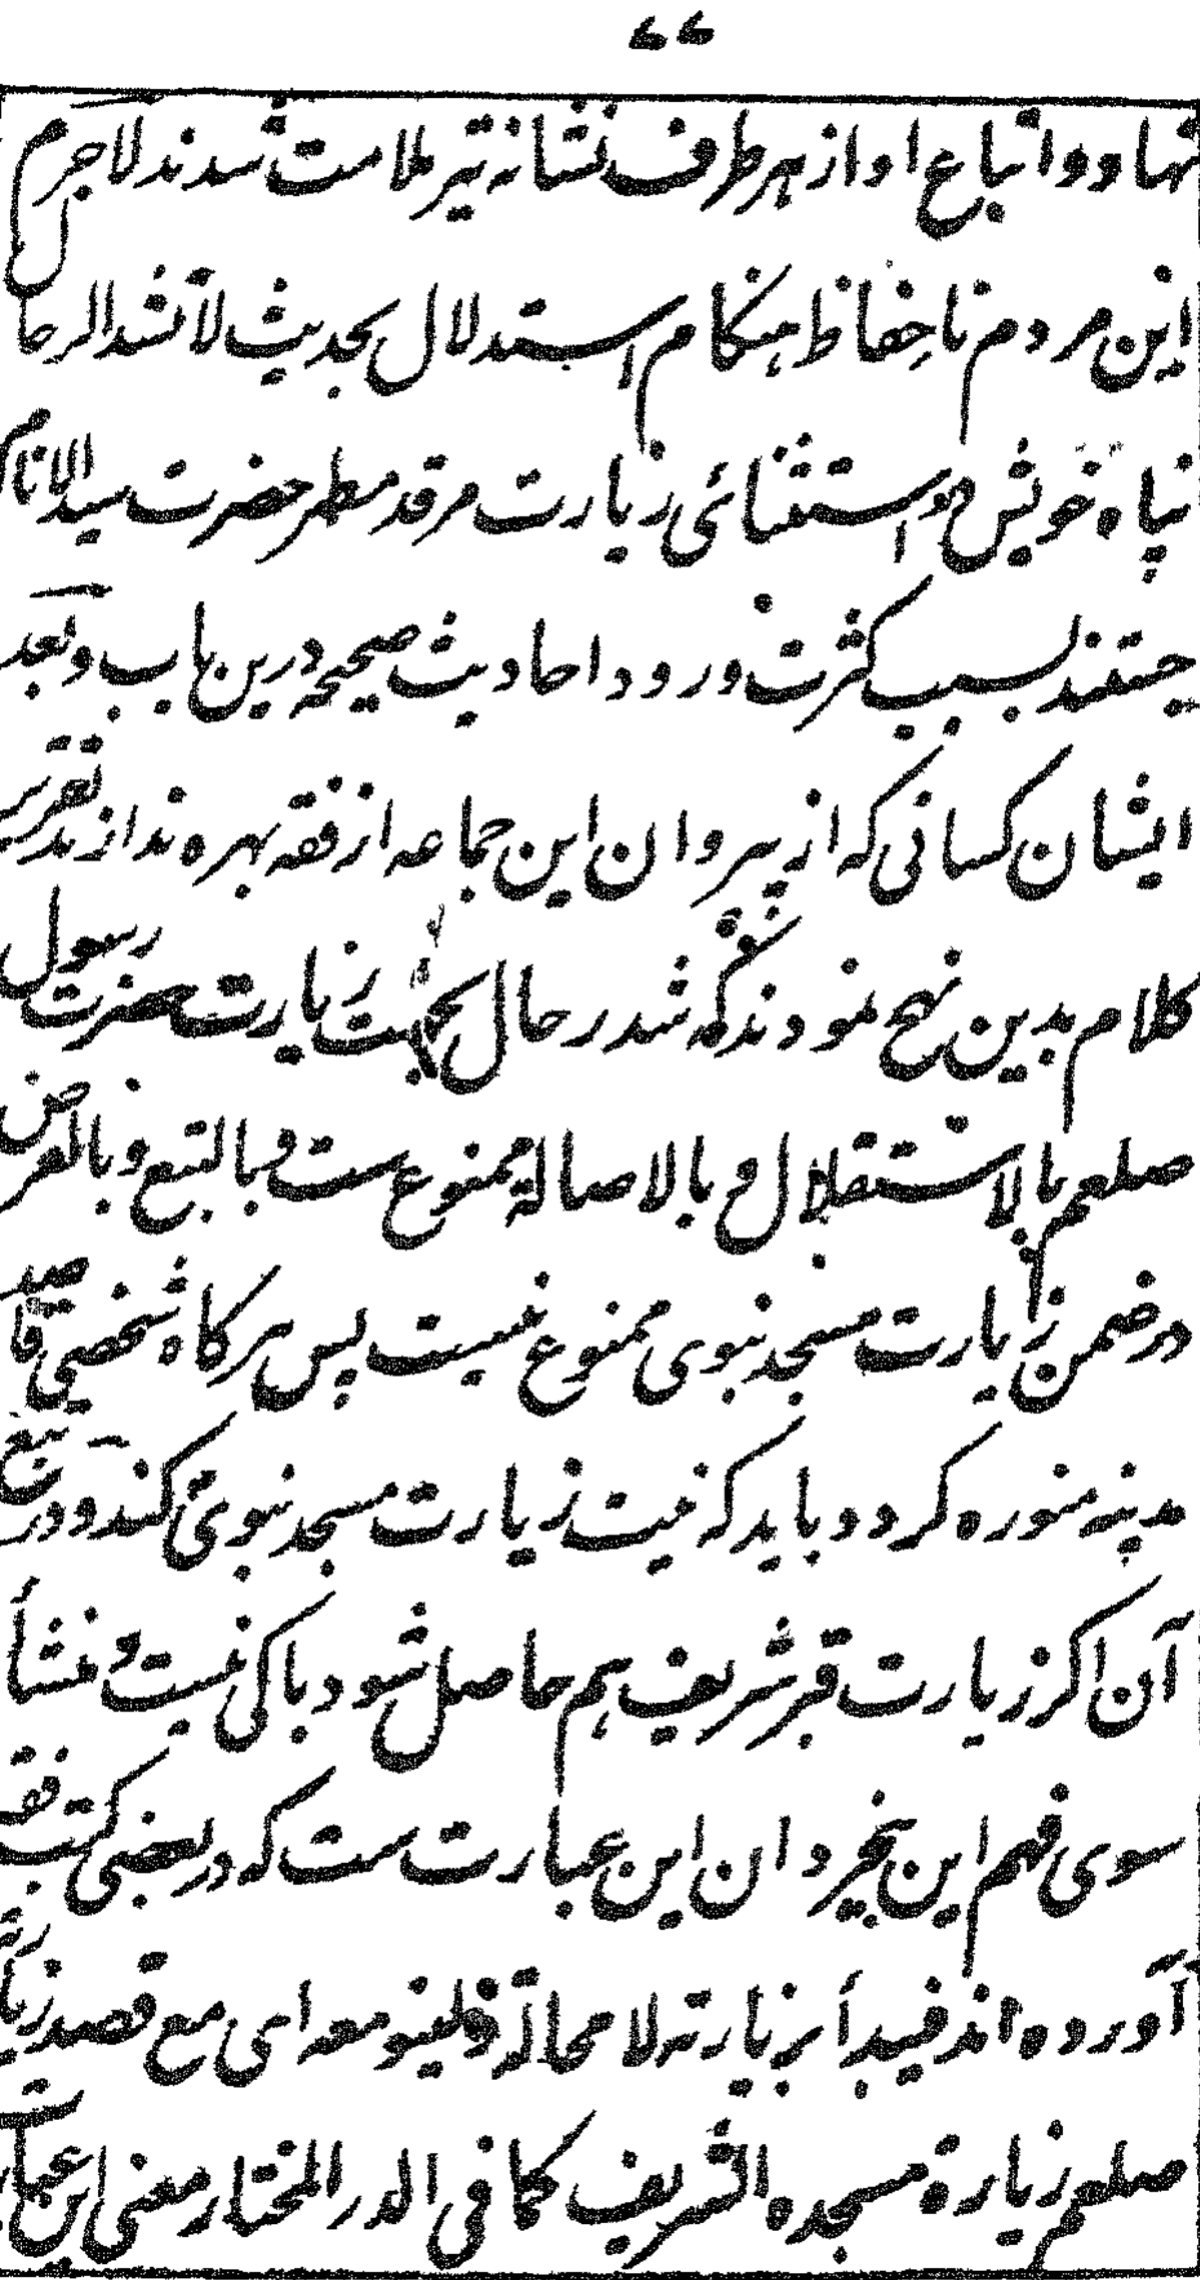 ۷۷
نهاد و و اتباع او از هر طرف نشانه تیر ملامت شدند لاجرم
این مردم نا حفاظ هنگام استدلال بحدیث لا تشد الرحال
پناه خویش در استثنائی زیارت مرقد مطهر حضرت سید الانام
جستند بسبب کثرت ورود احادیث صحیحه درین باب و بعد
ایشان کسانی که از پیروان این جماعه از فقه بهره ندارند تقریر
کلام بدین نهج نمودند که شد رحال بجهت زیارت حضرت رسول
صلعم بالاستقلال و بالاصاله ممنوع ست و بالتبع و بالعرض
در ضمن زیارت مسجد نبوی ممنوع نیست پس هرگاه شخصی قاصد
مدینه منوره گردد باید که نیت زیارت مسجد نبوی کند و در تبع
آن اگر زیارت قبر شریف هم حاصل شود باکی نیست و منشأ
سوی فهم این بیخردان این عبارت ست که در بعضی کتب فقه
آورده اند فیبدأ بزیارته لا محالة ولینو معه ای مع قصد زیارته
صلعم زیارة مسجده الشریف کما فی الدر المختار معنی این عبارت